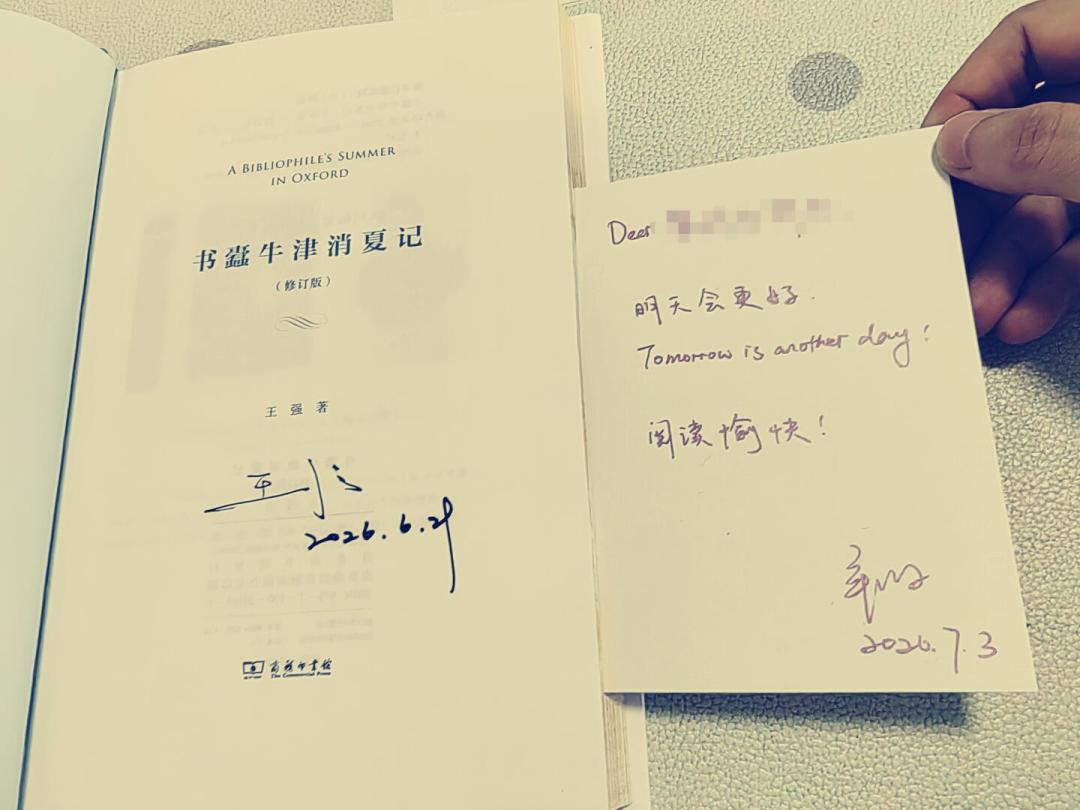 A BIBLIOPHILE'S SUMMER
IN OXFORD
书蠹牛津消夏记
（修订版）
王强 著
王强
2026.6.29
商务印书馆
The Commercial Press
Dear
明天会更好.
Tomorrow is another day!
阅读愉快!
2026.7.3